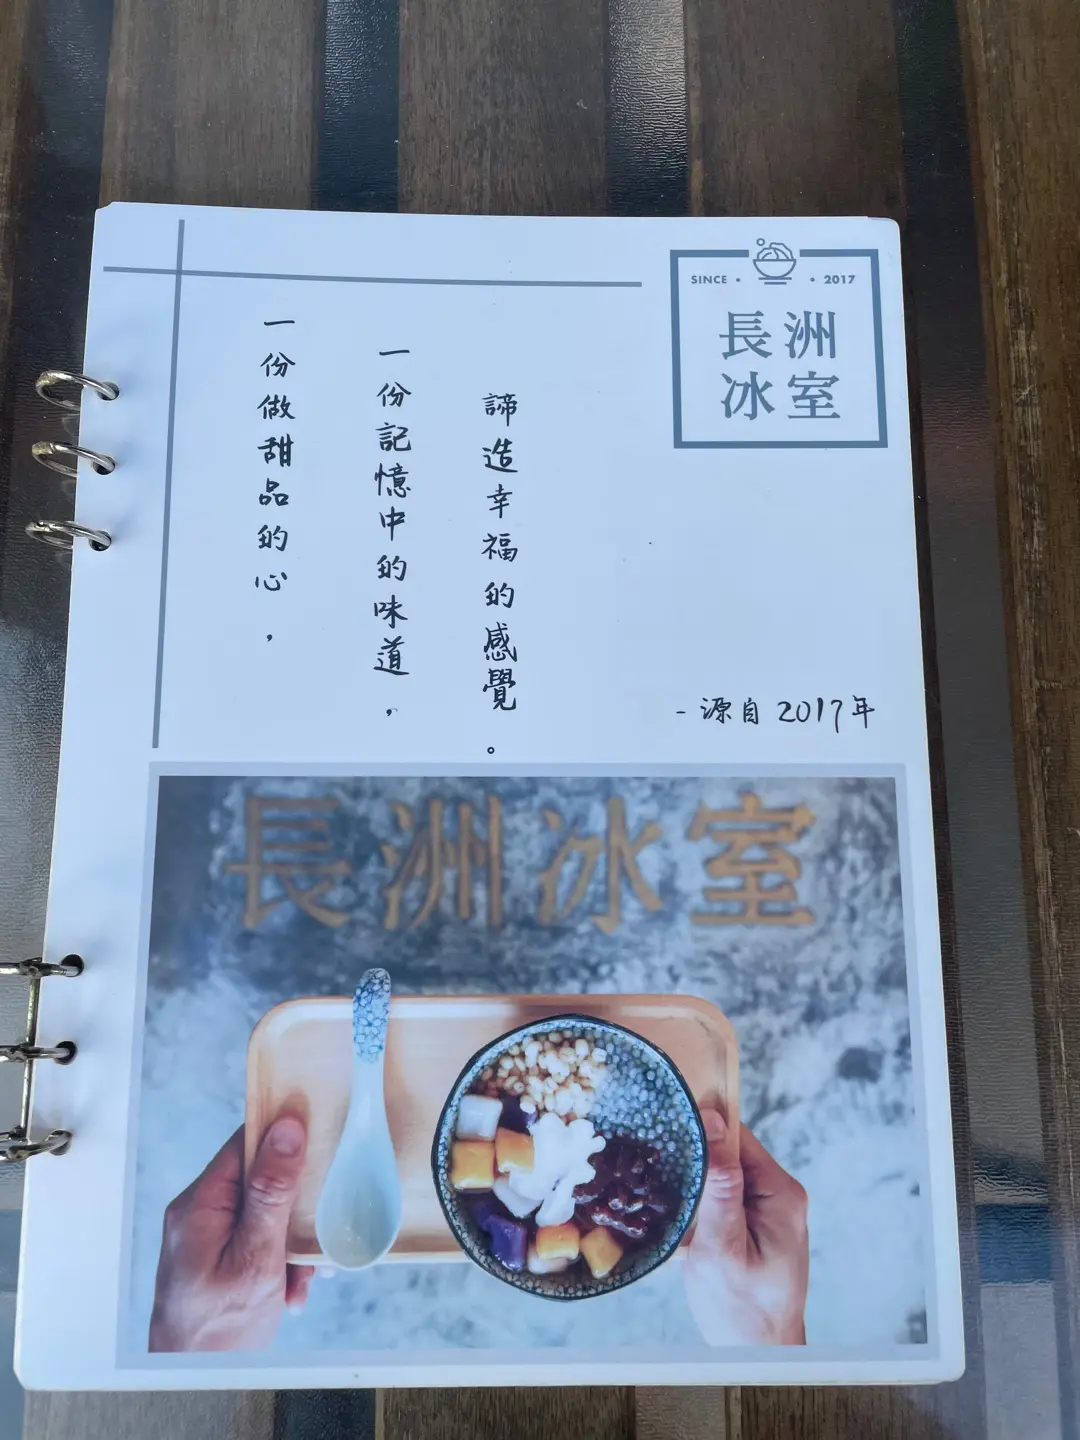 SINCE · · 2017
長洲
冰室
一份做甜品的心，
一份記憶中的味道，
諦造幸福的感覺。
- 源自 2017年
長洲冰室